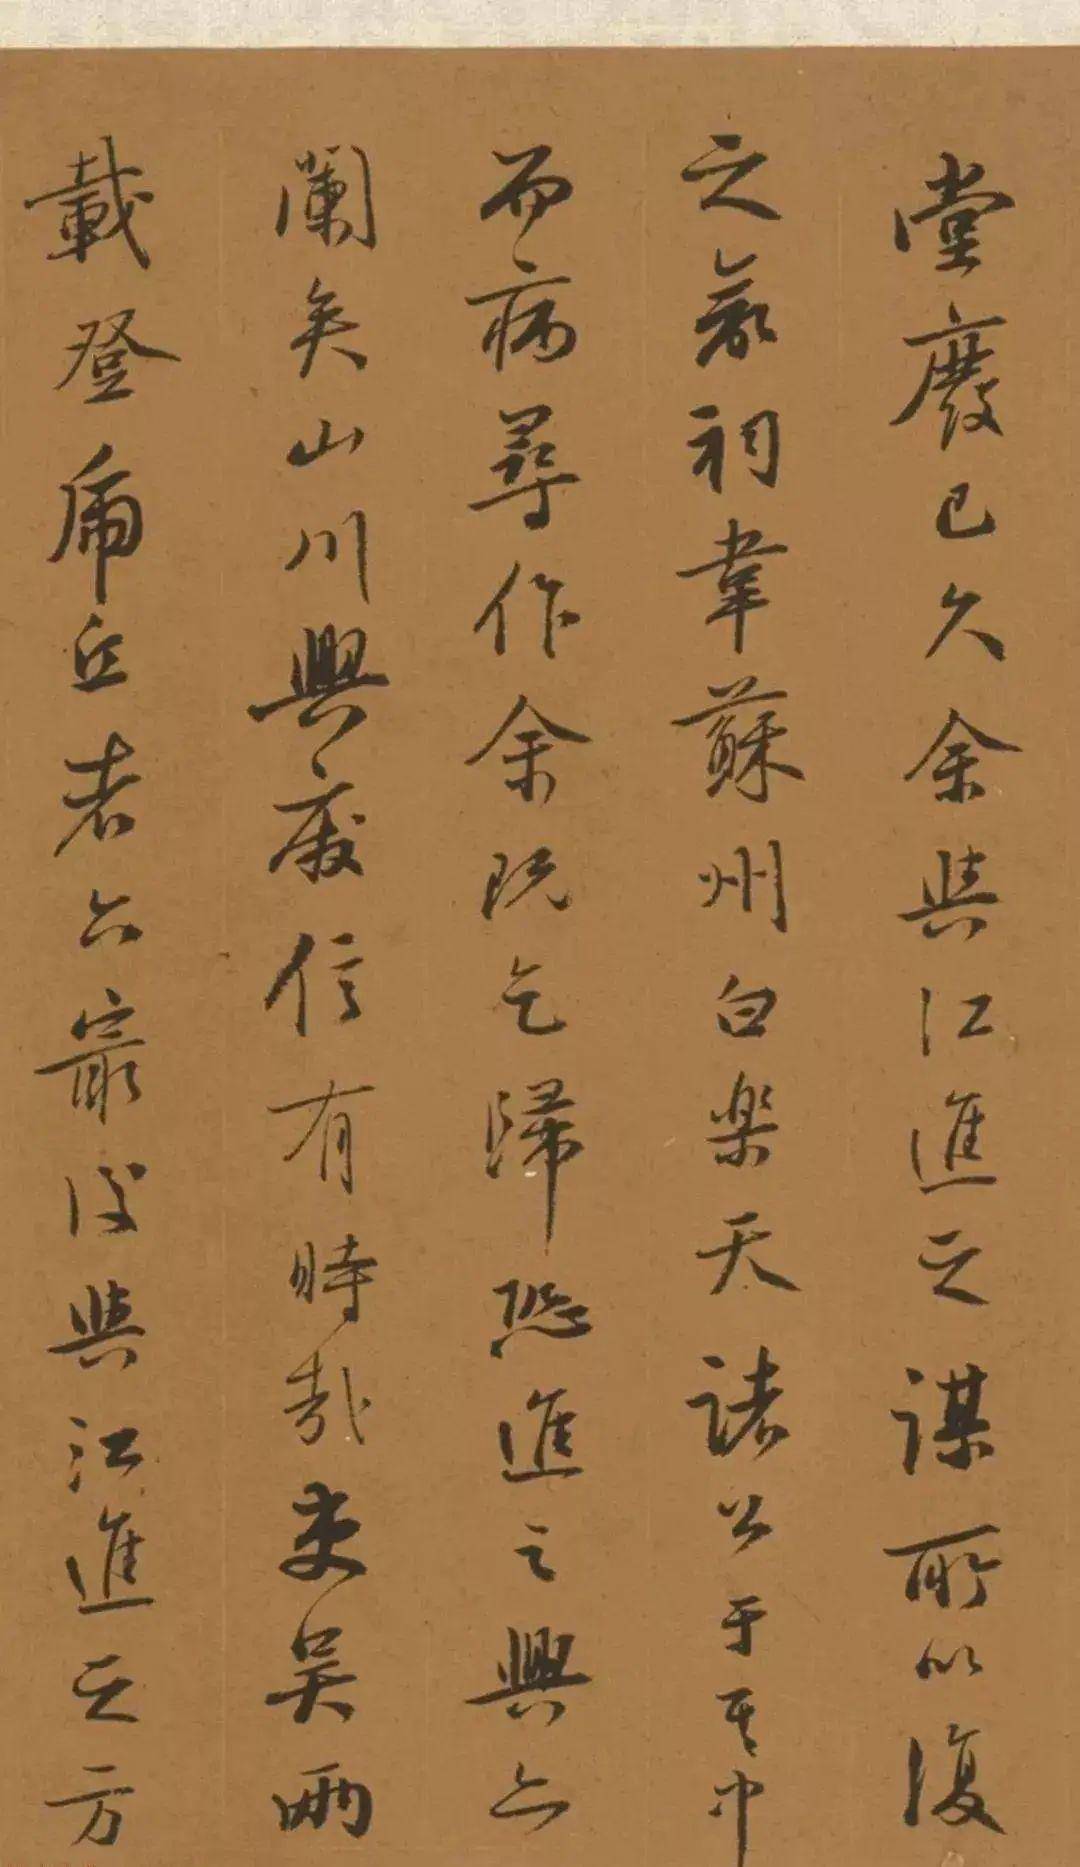 堂廢已久余與江進之謀所以復
之歲祠韋蘇州白樂天諸公于其中
而病尋作余既乞歸恐進之興亦
闌矣山川興廢信有時哉吏吳兩
載登虎丘者六最後與江進之方